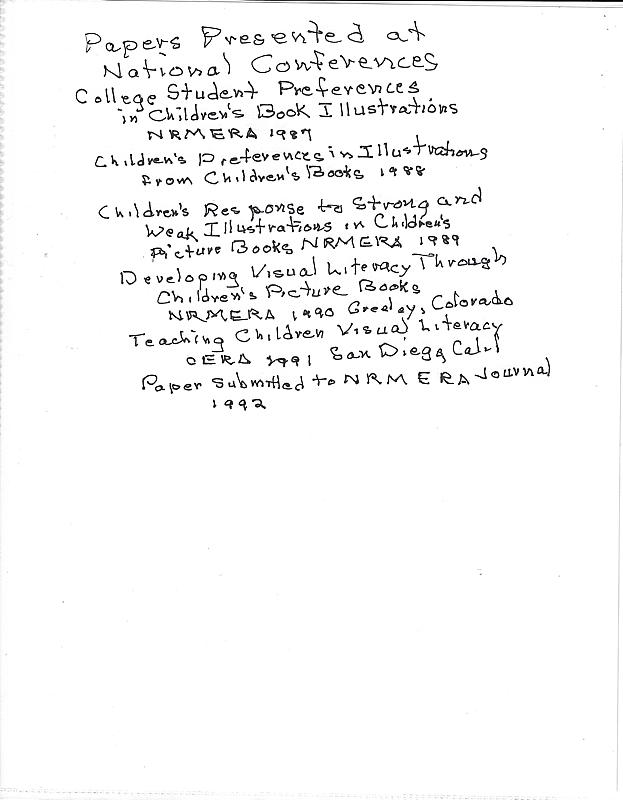 Papers Presented at
National Conferences
College Student Preferences
in Children's Book Illustrations
NRMERA 1987
Children's Preferences in Illustrations
from Children's Books 1988
Children's Response to Strong and
Weak Illustrations in Children's
Picture Books NRMERA 1989
Developing Visual Literacy Through
Children's Picture Books
NRMERA 1990 Greeley, Colorado
Teaching Children Visual Literacy
OERA 1991 San Diego Calif
Paper Submitted to NRMERA Journal
1992